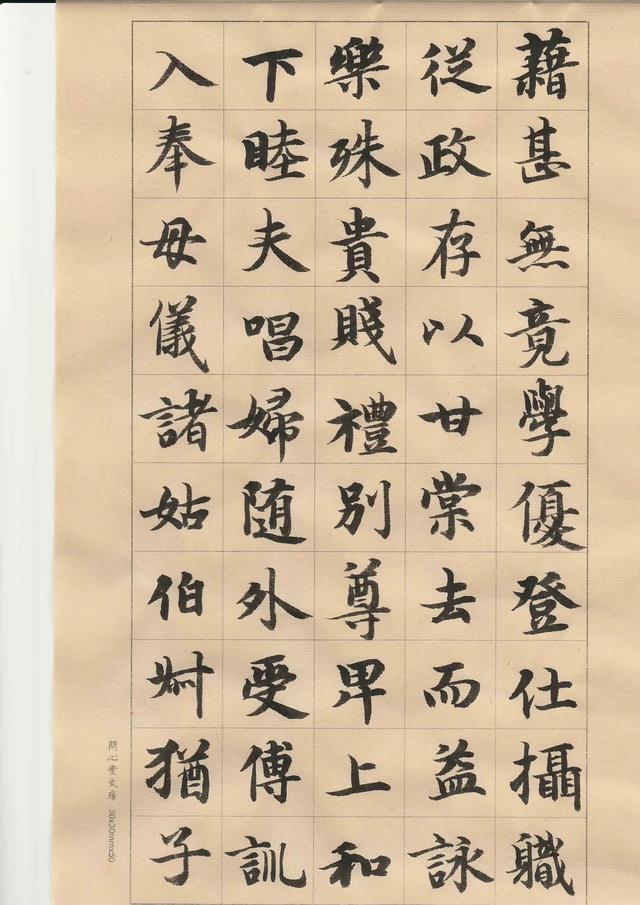 藉甚無竟學優登仕攝職
從政存以甘棠去而益詠
樂殊貴賤禮別尊卑上和
下睦夫唱婦随外受傅訓
入奉母儀諸姑伯叔猶子
問心堂文房 30x30mmx50